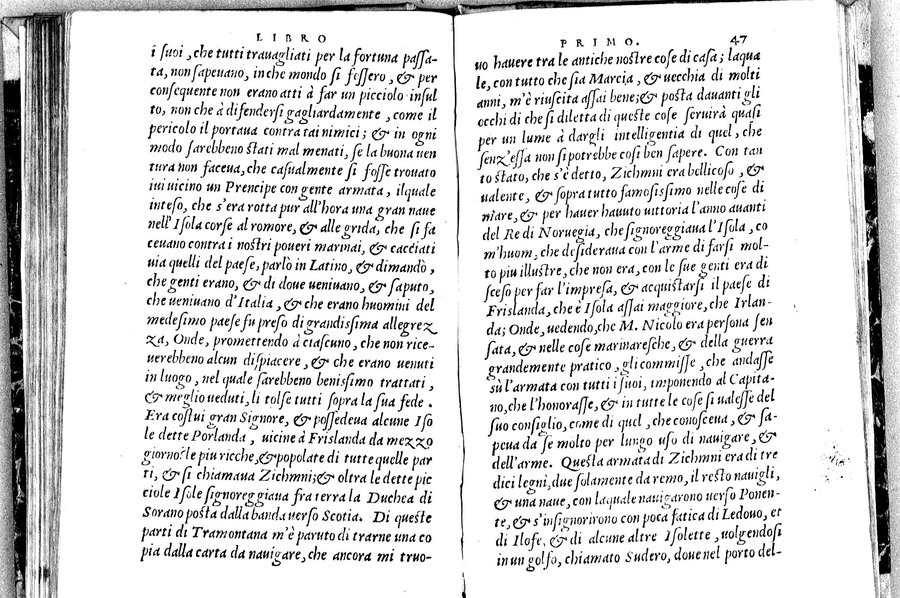 LIBRO
i suoi, che tutti travagliati per la fortuna passa-
ta, non sapeuano, in che mondo si fossero, & per
consequente non erano atti à far un picciolo insul
to, non che à difendersi gagliardamente, come il
pericolo il portaua contra tai nimici; & in ogni
modo sarebbeno stati mal menati, se la buona uen
tura non faceua, che casualmente si fosse trouato
iui uicino un Prencipe con gente armata, ilquale
inteso, che s'era rotta pur all'hora una gran naue
nell'Isola corse al romore, & alle grida, che si fa
ceuano contra i nostri poueri marinai, & cacciati
uia quelli del paese, parlò in Latino, & dimandò,
che genti erano, & di doue ueniuano, & saputo,
che ueniuano d'Italia, & che erano huomini del
medesimo paese fu preso di grandissima allegrez
za, Onde, promettendo à ciascuno, che non rice-
uerebbeno alcun dispiacere, & che erano uenuti
in luogo, nel quale sarebbeno benissimo trattati,
& meglio ueduti, li tolse tutti sopra la sua fede.
Era costui gran Signore, & possedeua alcune Iso
le dette Porlanda, uicine à Frislanda da mezzo
giorno; le piu ricche, & popolate di tutte quelle par
ti, & si chiamaua Zichmni; & oltra le dette pic
ciole Isole signoreggiaua fra terra la Duchea di
Sorano posta dalla banda uerso Scotia. Di queste
parti di Tramontana m'è paruto di trarne una co
pia dalla carta da nauigare, che ancora mi truo-
PRIMO. 47
uo hauere tra le antiche nostre cose di casa; laqua
le, con tutto che sia Marcia, & uecchia di molti
anni, m'è riuscita assai bene; & posta dauanti gli
occhi di che si diletta di queste cose seruirà quasi
per un lume à dargli intelligentia di quel, che
senz'essa non si potrebbe cosi ben sapere. Con tan
to stato, che s'è detto, Zichmni era bellicoso, &
ualente, & sopra tutto famosissimo nelle cose di
mare, & per hauer hauuto uittoria l'anno auanti
del Re di Noruegia, che signoreggiaua l'Isola, co
m'huom, che desideraua con l'arme di farsi mol-
to piu illustre, che non era, con le sue genti era di
sceso per far l'impresa, & acquistarsi il paese di
Frislanda, che è Isola assai maggiore, che Irlan-
da; Onde, uedendo, che M. Nicolo era persona sen
sata, & nelle cose marinaresche, & della guerra
grandemente pratico, gli commisse, che andasse
sù l'armata con tutti i suoi, imponendo al Capita-
no, che l'honorasse, & in tutte le cose si ualesse del
suo consiglio, come di quel, che conosceua, & sa-
peua da se molto per lungo uso di nauigare, &
dell'arme. Questa armata di Zichmni era di tre
dici legni, due solamente da remo, il resto nauigli,
& una naue, con laquale nauigarono uerso Ponen-
te, & s'insignorirono con poca fatica di Ledouo, et
di Ilofe, & di alcune altre Isolette, uolgendosi
in un golfo, chiamato Sudero, doue nel porto del-